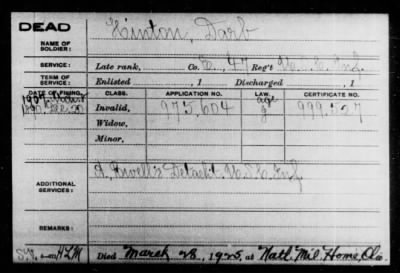 DEAD
NAME OF SOLDIER:
Hinton, Darb
SERVICE:
Late rank, Co. E, 47 Reg't Inf.
TERM OF SERVICE:
Enlisted , 1 Discharged , 1
DATE OF FILING. CLASS. APPLICATION NO. LAW. CERTIFICATE NO.
Invalid, 975.604 999.527
Widow,
Minor,
ADDITIONAL SERVICES:
REMARKS:
Died March 28, 1925, at Natl. Mil. Home,